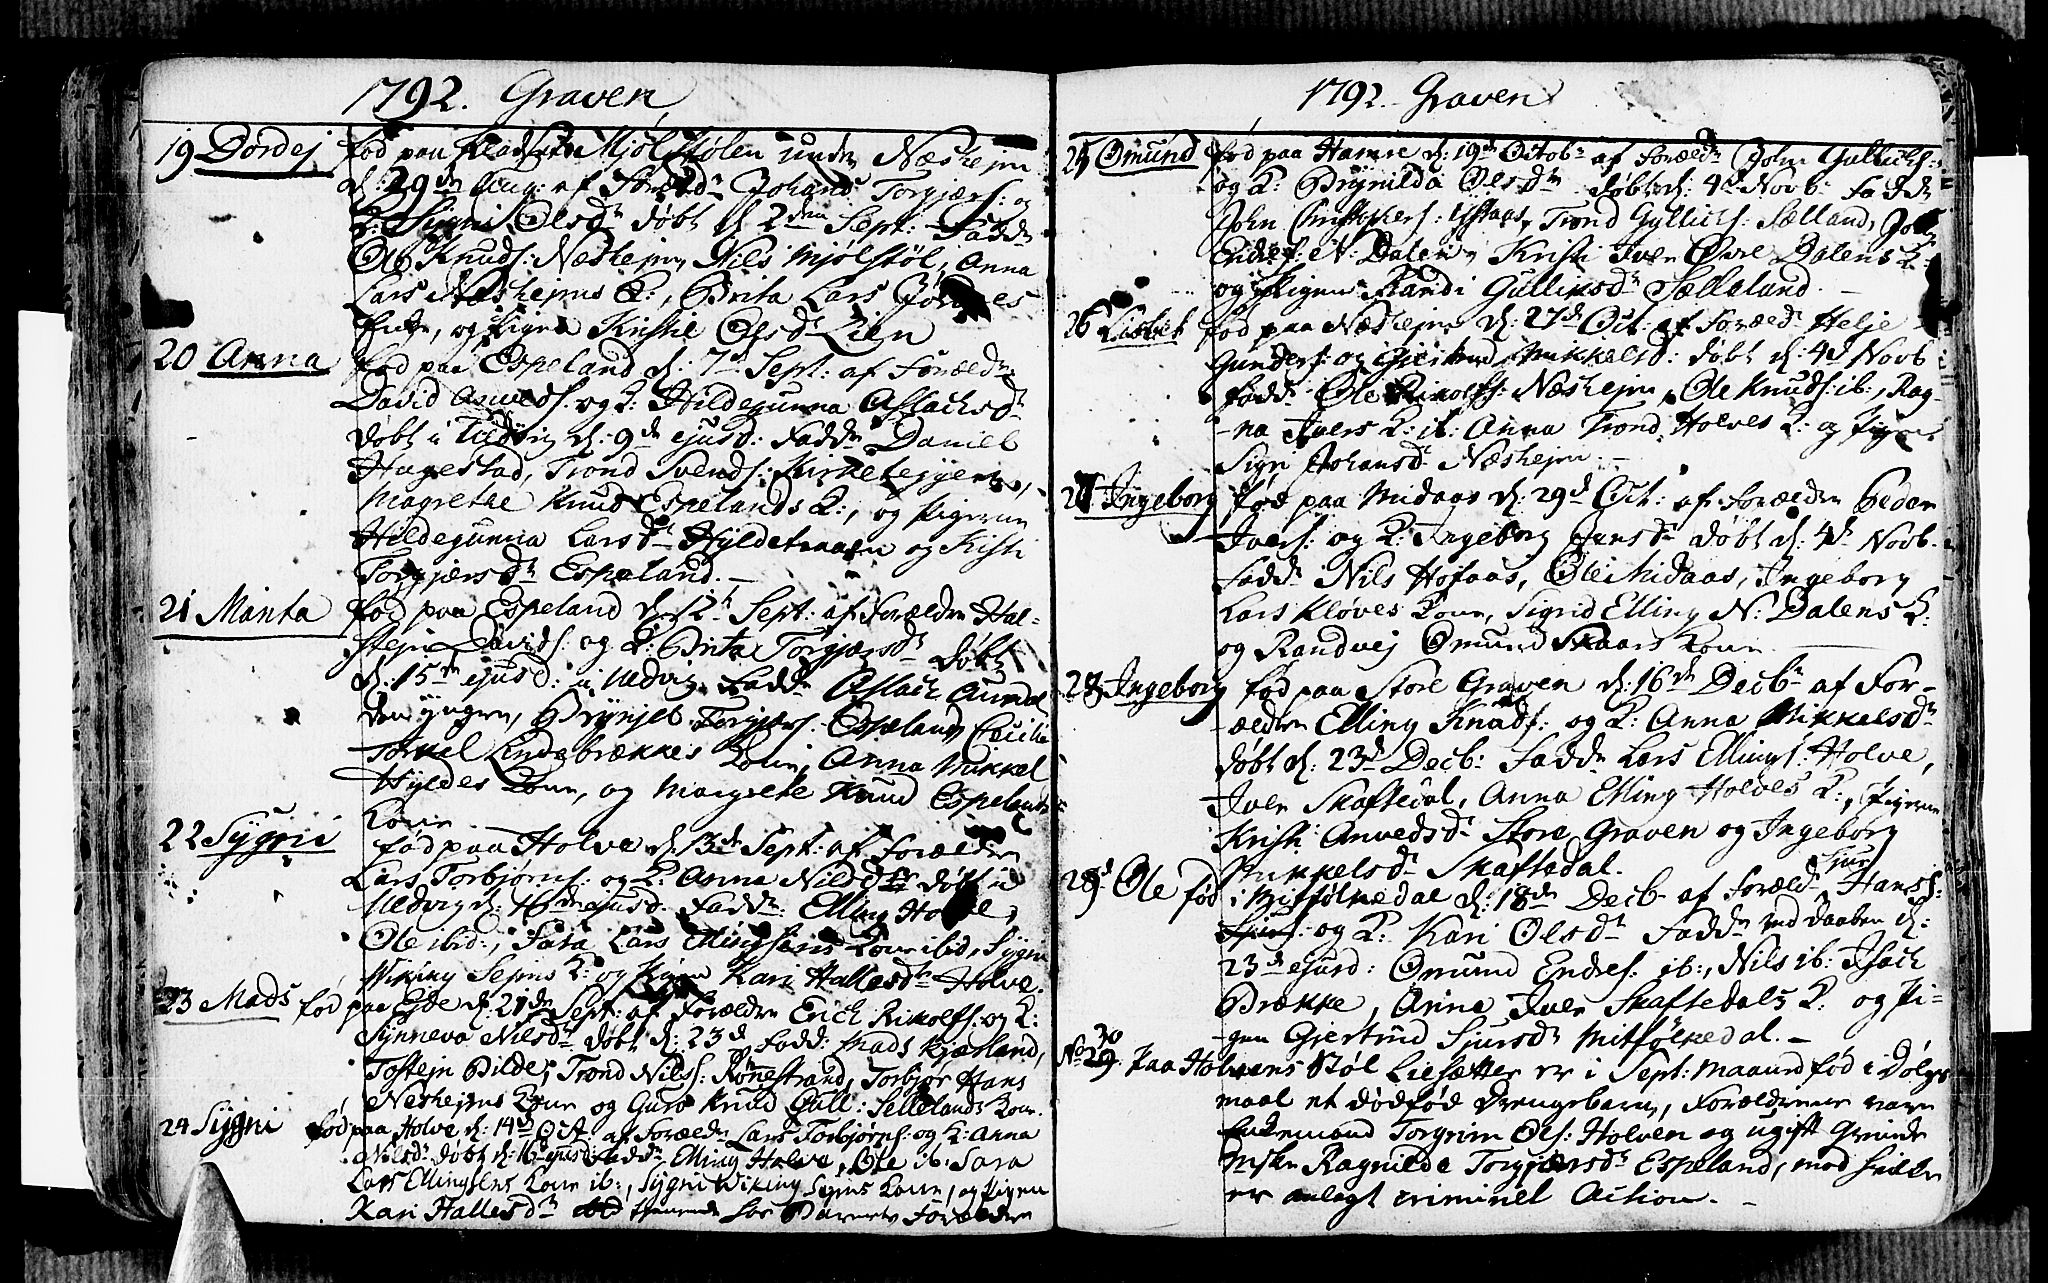 1792. Graven
19 Dordej fød paa Pladset Mjølstølen under Næshejm
d: 29de Aug: af Foræld: Johans Torgjærs: og
K: Sigri Olsdtr døbt d 2den Sept: Fadde
Ole Knuds: Næshejm, Nils Mjølstøl, Anna
Lars Næshejms K:, Brita Lars
Enke, og Pigen Kristie Olsdtr Lien
20 Anna fød paa Espeland d: 7d Sept: af Foræld:
David Arveds: og K: Hildegunna Aslachsdtr
døbt i Uldvig d: 9de ejusd: Fadde Daniel
Hagestad, Trond Svends: Kirketejgen,
Magrethe Knud Espelands K:, og Pigerne
Hildegunna Larsdtr Hyldetraaen og Kristi
Torgjærsdtr Espeland. —
21 Manta fød paa Espeland d: 12te Sept: af Forældre Hal-
stejn Davids: og K: Brita Torgjærsdtr døbt
d: 15de ejusd: i Uldvig Fadde Aslach Aurdal
den yngre, Brynjel Torgjærs: Espeland, Cecilie
Torkel Lindebrækkes Kone, Anna Mikkel
Hyldes Kone, og Margrethe Knud Espelands
Kone
22 Sygni fød paa Holve d: 13de Sept: af Forældre
Lars Torbjørns: og K: Anna Nilsdtr døbt i
Uldvig d: 16de ejusd: Fadde: Elling Holve,
Ole ibid:, Sara Lars Ellingsens Kone ibid, Sygni
Wiking Sejms K: og Pigen Kari Hallesdtr Holve.
23 Mads fød paa Ejde d: 21de Sept: af Forældre Erich Rikolfs: og K:
Synneva Nilsdtr døbt d: 23d Fadd: Mads Kjærland,
Tostejn Bilde, Trond Nilss: Rønestrand, Torbjør Hans
Neshejms Kone og Guro Knud Gull: Sellelands Kone.
24 Sygni fød paa Holve d: 14d Oct: af Forældr Lars Torbjørns: og K: Anna
Nilsdr døbt d: 16de ejusd: Fadde: Elling Holve, Ole ib: Sara
Lars Ellingsens Kone ib:, Sygni Wiking Sejms Kone, og Pigen
Kari Hallesdtr Barnets Forældre
1792. Graven
25 Omund fød paa Hamre d: 19de Octobr af Forældr John Gullichs:
og K: Brynilda Olsdtr døbt d: 4de Novb: Fadde
John Christophers: Trond Gullichs: Sælland, John
Endres: N: Dalen, Kristi Iver Øvre Dalens K:
og Pigen Randi Gulliksdtr Sælleland. —
26 Lisbet fød paa Næshejm d: 27de Oct: af Foræld: Helje
Gunders: og Gjertrud Mikkelsd: døbt d: 4d Novb
Fadd: Ole Rikolfs: Næshejm, Ole Knuds: ib:, Rag-
-na Ivers K: ib: Anna Trond Holves K: og Pigen
Sigri Johansdr Næshejm. —
27 Ingeborg fød paa Midaas d: 29d Oct: af Forældre Peder
Ivers: og K: Ingeborg Jonsdtr døbt d: 4de Novb.
Fadde Nils Hofaas, Ole Midaas, Ingeborg
Lars Kløves Kone, Sigrid Elling N: Dalens K:
og Randvej Omund Skaars Kone
28 Ingeborg fød paa Store Graven d: 16de Decbr af For-
ældre Elling Knuds: og K: Anna Mikkelsdr
døbt d: 23de Decb: Fadde Lars Ellings: Holve,
Iver Skaftedal, Anna Elling Holves K:, Pigerne
Kristi Arvedsdr Store Graven og Ingeborg
Mikkelsdr Skaftedal.
29 Ole fød i Mitfølkedal d: 18de Decb. af Foræld: Sjur Hanss:
og K: Kari Olsdtr Fadde ved Daaben d:
23de ejusd: Omund Endres: ib:, Nils ib: Isach
Brække, Anna Iver Skaftedals K: og Pi-
gen Gjertrud Sjursdr Mitfølkedal. —
30
No 29. Paa Holvens Støl Liesætter er i Sept: Maaned fød i Dølgs
maal et dødfød Drengebarn, Forældrene vare
Enkemand Torgrim Ols: Holven og ugift Qvinde
Mske Ragnilde Torgjærsdr Espeland, mod hvilke
er anlagt criminel Action. —